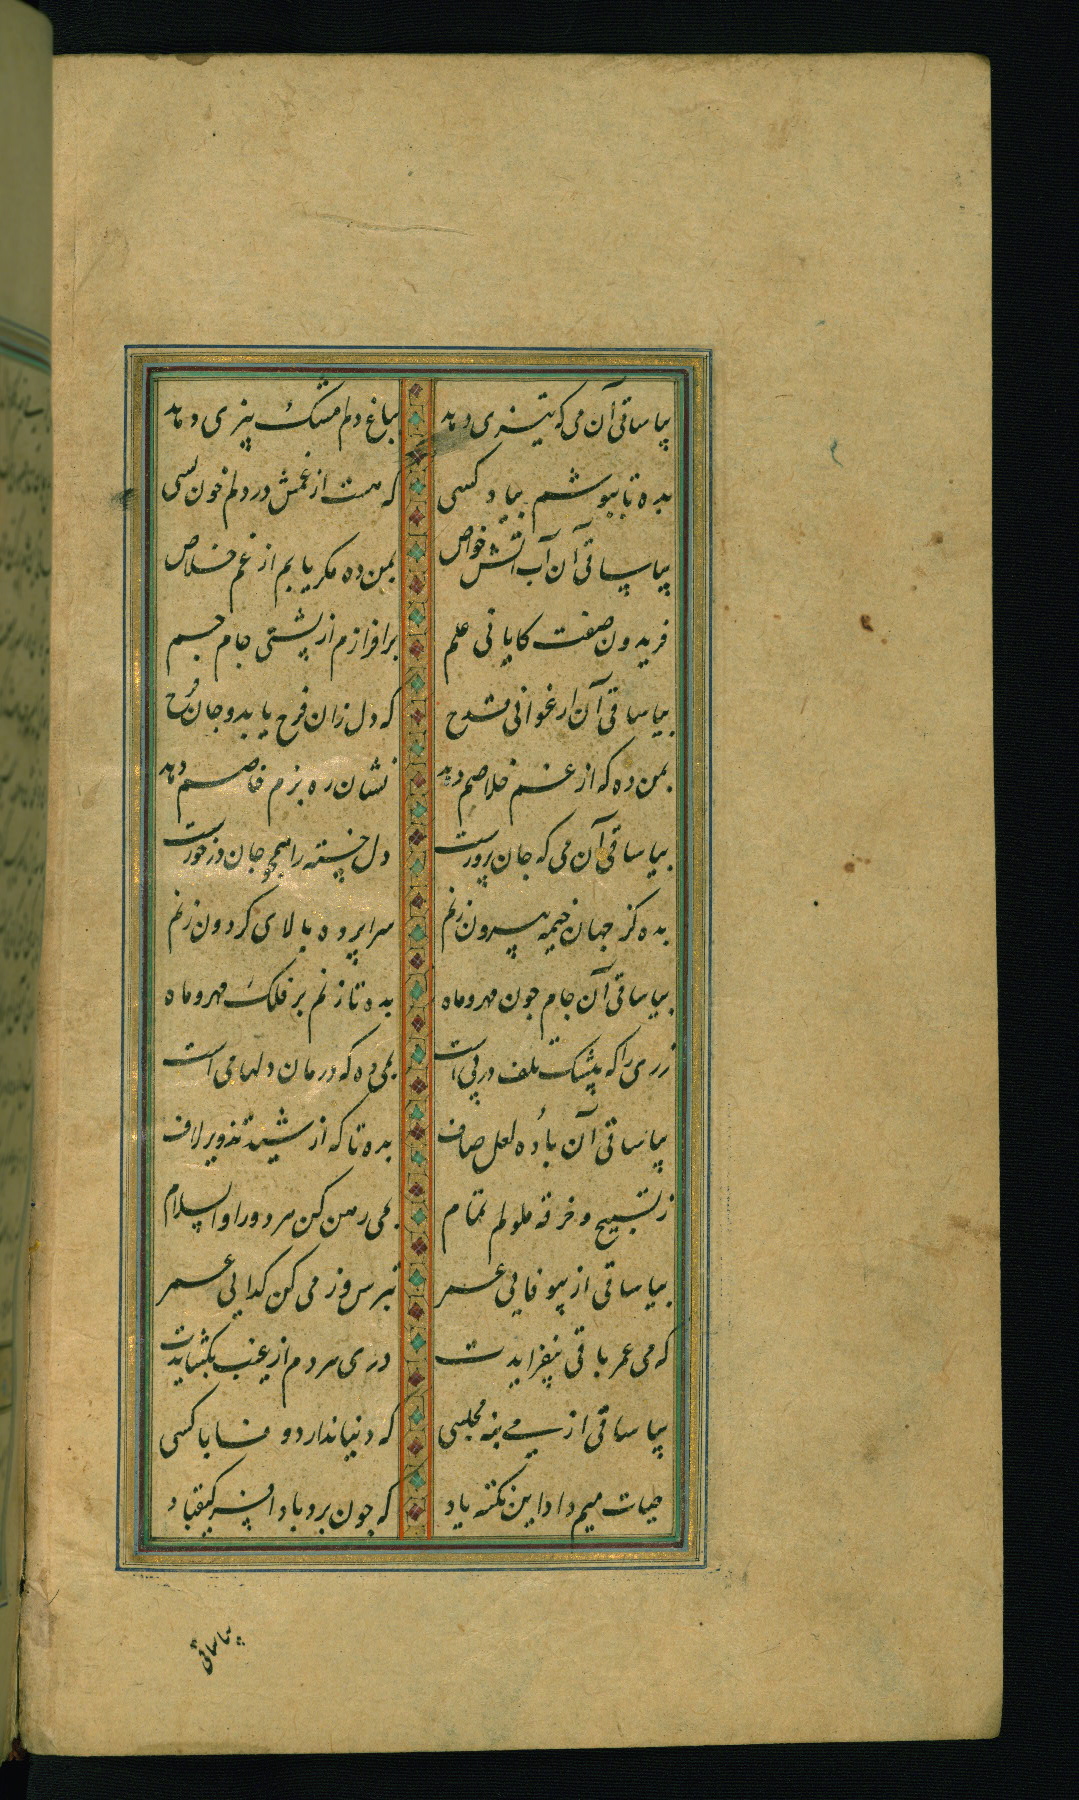 بیا ساقی آن می که تیزی دهد بباغ دلم مشک بیزی دهد
بده تا بنوشم بیاد کسی که هست از غمش در دلم خون بسی
بیا ساقی آن آب آتش خواص بمن ده مکر یابم از غم خلاص
فریدون صفت کاویانی علم برافرازم از پشتی جام جم
بیا ساقی آن ارغوانی قدح که دل زان فرح یابد و جان فرح
بمن ده که از غم خلاصم دهد نشان ره بزم خاصم دهد
بیا ساقی آن می که جان پرورست دل خسته را همچو جان درخورست
بده کز جهان خیمه بیرون زنم سراپرده بالای کردون زنم
بیا ساقی آن جام چون مهر و ماه بده تا زنم بر فلک مهر و ماه
زری را که بیشک تلف در پی است بمی ده که درمان دلها می است
بیا ساقی آن باده لعل صاف بده تا که از شید و تزویر لاف
ز تسبیح و خرقه ملولم تمام بمی رهن کن هر دو را والسلام
بیا ساقی از بیوفایی عمر بترس و ز می کن کدایی عمر
که می عمر باقی بیفزایدت دری هر دم از غیب بکشایدت
بیا ساقی از می بنه مجلسی که دنیا ندارد وفا با کسی
حباب میم داد این نکته یاد که چون برد باد افسر کیقباد
بیا ساقی